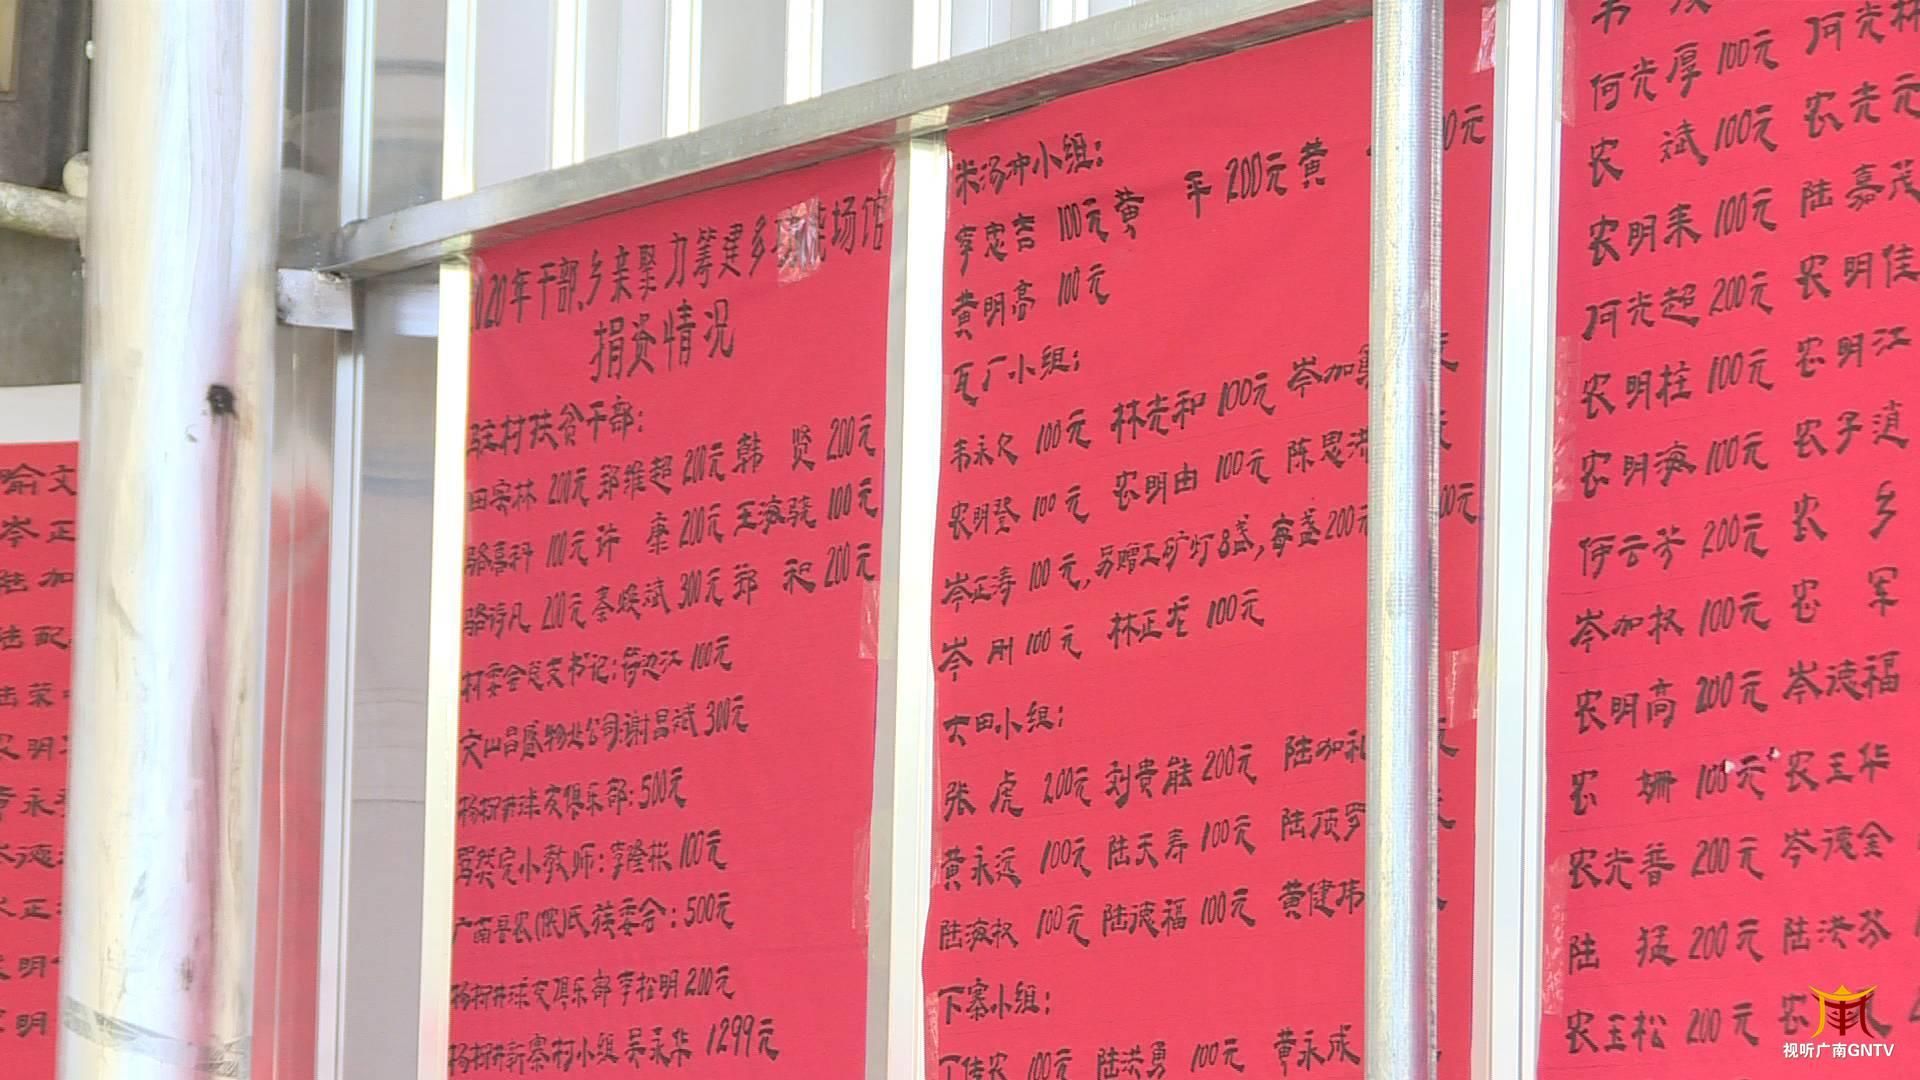 2020年干部、乡亲聚力筹建多功能场馆
捐资情况
驻村扶贫干部:
田实林 200元 郑维超 200元 韩 贤 200元
骆嘉科 100元 许 康 200元 王海骁 100元
骆诗凡 200元 秦焕斌 300元 郑 和 200元
村委会总支书记: 100元
文山昌盛物业公司:谢昌斌 300元
杨柳井球友俱乐部:500元
完小教师:李隆彬 100元
广南县农(侬)氏族委会:500元
杨柳井球友俱乐部李松明200元
杨柳井新寨村小组 吴永华 1299元
米汤冲小组:
李忠吉 100元 黄 平 200元 黄
黄明高 100元
瓦厂小组:
韦永久 100元 林光和 100元 岑加
农明登 100元 农明由 100元 陈思洪
岑正寿 100元,另赠工矿灯8盏,每盏200元
岑 刚 100元 林正 100元
大田小组:
张 虎 200元 刘贵能 200元 陆加礼
黄永远 100元 陆天寿 100元 陆顶罗
陆海权 100元 陆德福 100元 黄健玮
下寨小组:
丁传农 100元 陆洪勇 100元 黄永成
何光厚 100元 何光林
农 斌 100元 农光元
农明来 100元 陆嘉茂
何光超 200元 农明佳
农明柱 100元 农明江
农明海 100元 农子逍
伊云芬 200元 农 乡
岑加权 100元 农 军
农明高 200元 岑德福
农 姗 100元 农玉华
农光普 200元 岑德金
陆 猛 200元 陆洪芬
农玉松 200元 农
喻文
岑正
陆加
陆配
陆荣
农明
韦永
岑德
视听广南GNTV